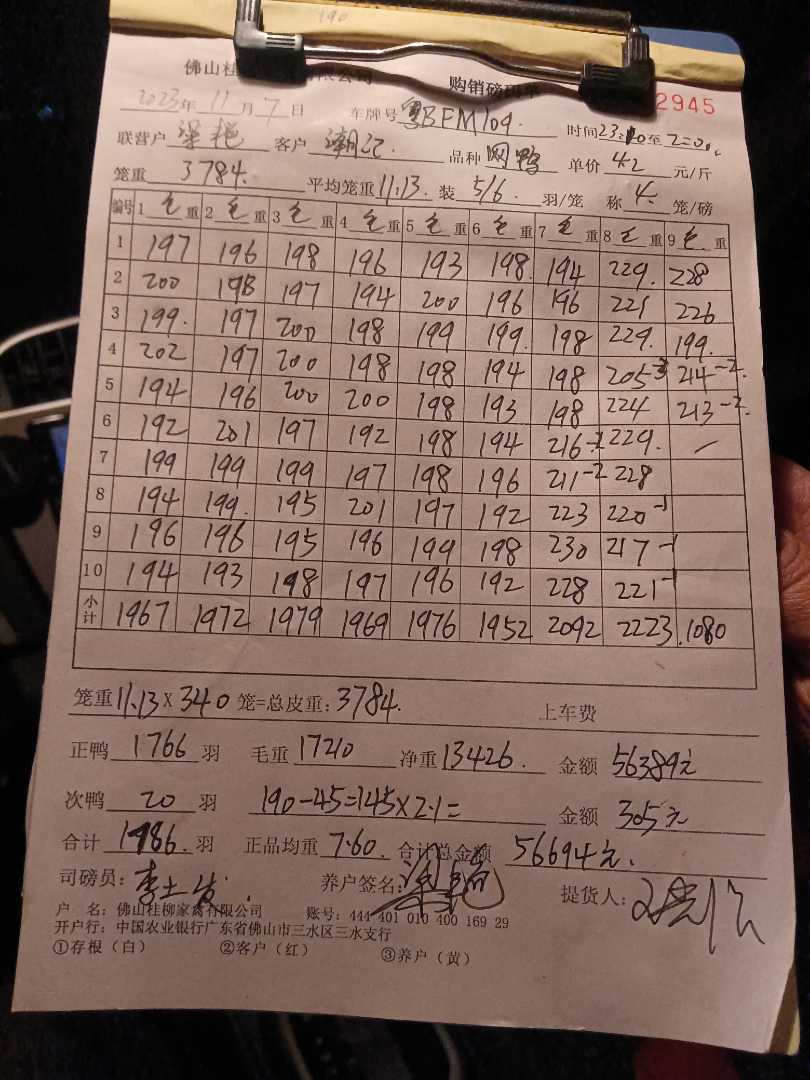 190
佛山桂 有限公司 购销磅码单 2945
2023年11月7日 车牌号 粤BFM109. 时间23: 0至
联营户 梁艳 客户 潮记 品种 网鸭 单价 4.2 元/斤
笼重 3784. 平均笼重 11.13. 装 5/6. 羽/笼 称 4. 笼/磅
编号 1 毛 重 2 毛 重 3 毛 重 4 毛 重 5 毛 重 6 毛 重 7 毛 重 8 毛 重 9 毛 重
1 197 196 198 196 193 198. 194 229. 228
2 200 198 197 194 200 196 196 221 226
3 199. 197 200 198 199 199. 198 229. 199.
4 202 197 200 198 198 194 198 205-3 214-2.
5 194 196 200 200 198 193 198 224 213-2.
6 192 201 197 192 198 194 216-2 229. /
7 199 199 199 197 198 196 211-2 228
8 194 199. 195 201 197 192 223 220-1
9 196 196 195 196 199 198 230 217-1
10 194 193 198 197 196 192 228 221-1
小计 1967 1972 1979 1969 1976 1952 2092 2223 1080
笼重 11.13 X 340 笼=总皮重: 3784. 上车费
正鸭 1766 羽 毛重 17210 净重 13426. 金额 56389元
次鸭 20 羽 190-45=145×2.1= 金额 305元
合计 1786. 羽 正品均重 7.60. 合计总金额 56694元.
司磅员: 李土 养户签名: 梁艳 提货人:
户 名: 佛山桂柳家禽有限公司 账号: 444 401 010 400 169 29
开户行: 中国农业银行广东省佛山市三水区三水支行
①存根（白） ②客户（红） ③养户（黄）